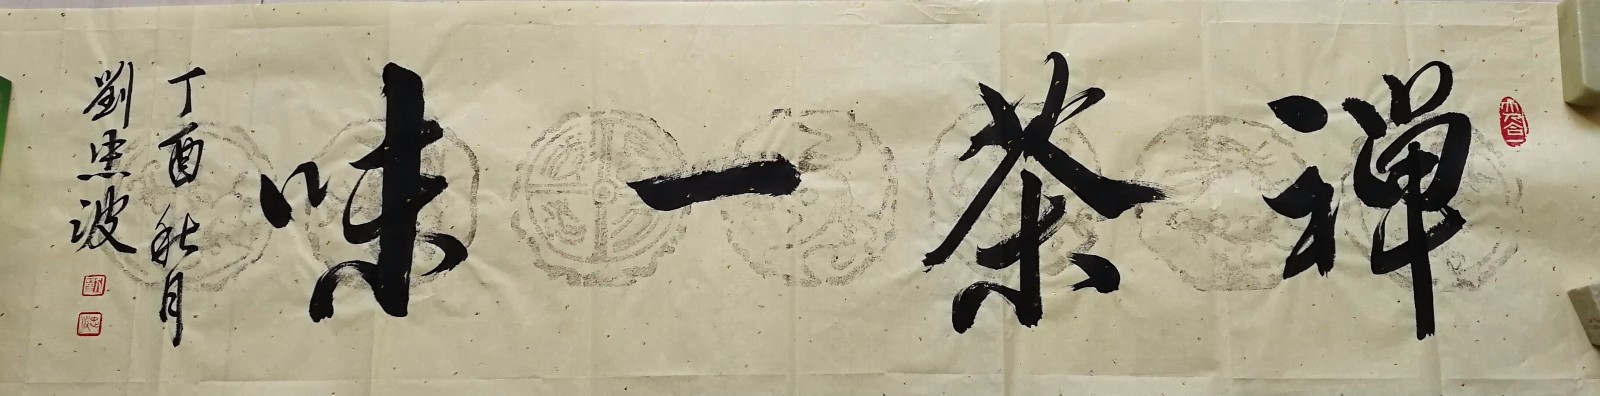 禪茶一味
丁酉秋月
劉忠波